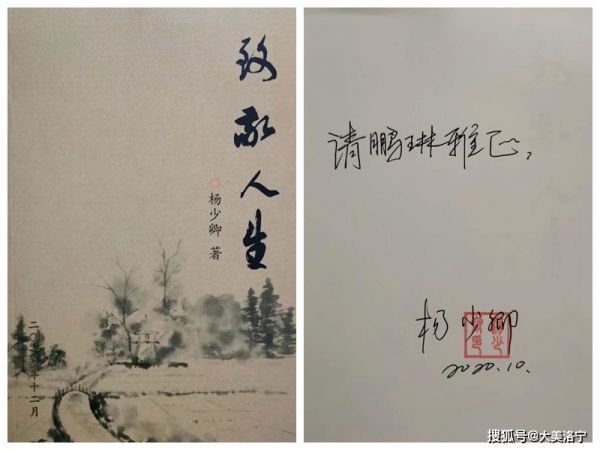 致敬人生
杨少卿 著
二〇一九年十二月
请鹏琳雅正,
杨少卿
2020.10.
搜狐号@大美洛宁